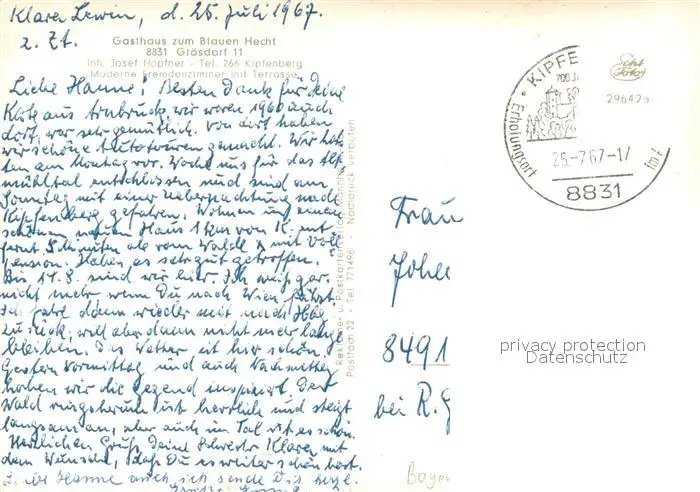 Klara Lewin, d. 25. Juli 1967.
z. Zt.
Gasthaus zum Blauen Hecht
8831 Grösdorf 11
Inh. Josef Hopfner - Tel. 266 Kipfenberg
Moderne Fremdenzimmer mit Terrasse
Liebe Hanne! Besten Dank für Deine
Karte aus Arnbruck, wir waren 1960 auch
dort, war sehr gemütlich. Von dort haben
wir schöne Autotouren gemacht. Wir hat-
ten am Montag vor. Woche uns für das Alt-
mühltal entschlossen und sind am
Sonntag mit einer Uebernachtung nach
Kipfenberg gefahren. Wohnen in einem
schönen neuen Haus 1 km von K. ent
fernt, 5 Minuten ab vom Walde & mit Voll
pension. Haben es sehr gut getroffen.
Bis 14.8. sind wir hier. Ich weiß gar
nicht mehr wenn Du nach Wien fährst.
Ich fahre dann wieder mit nach Hbg
zurück, will aber dann nicht mehr lange
bleiben. Das Wetter ist hier schön.
Gestern Vormittag und auch Nachmittag
haben wir die Gegend inspiziert. Der
Wald ringsherum ist herrlich und steigt
langsam an, aber auch im Tal ist es schön.
Herzlichen Gruß Deine Schwester Klara mit
dem Wunsche, daß Du es weiter schön hast.
Hanne auch ich sende Dir herzl.
Reklame- u. Postkartenverlag
Postfach 22 - Tel. 171496 - Nachdruck verboten
KIPFE
700 J
Erholungsort
im A
25.-7.67-17
8831
Echt
Foto
296426
Frau
Johe
8491
bei R. G
Baye
privacy protection
Datenschutz